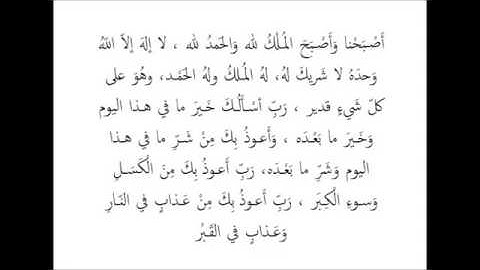 أَصْبَحْنا وَأَصْبَحَ المُلْكُ لله وَالحَمدُ لله ، لا إلهَ إلاّ اللّهُ
وَحدَهُ لا شَريكَ لهُ، لهُ المُلكُ ولهُ الحَمْد، وهُوَ على
كلّ شَيءٍ قدير ، رَبِّ أسْأَلُكَ خَيرَ ما في هذا اليوم
وَخَيرَ ما بَعْدَه ، وَأَعوذُ بِكَ مِنْ شَرِّ ما في هذا
اليوم وَشَرِّ ما بَعْدَه، رَبِّ أَعوذُ بِكَ مِنَ الْكَسَلِ
وَسوءِ الْكِبَر ، رَبِّ أَعوذُ بِكَ مِنْ عَذابٍ في النّارِ
وَعَذابٍ في القَبْر